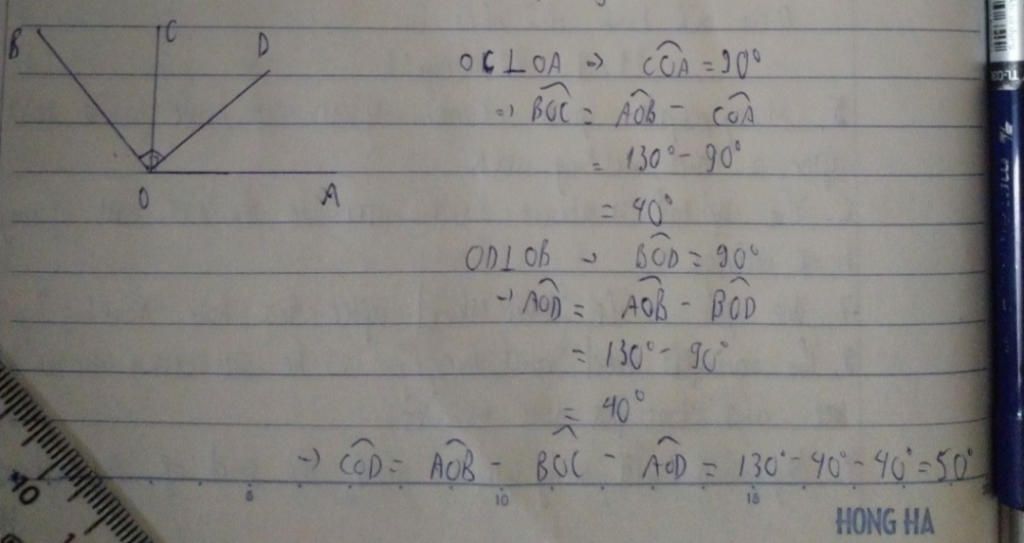 B C D
O A
OC⊥OA → COA = 90°
=> BOC = AOB - COA
= 130° - 90°
= 40°
OD⊥OB → BOD = 90°
→ AOD = AOB - BOD
= 130° - 90°
= 40°
→ COD = AOB - BOC - AOD = 130° - 40° - 40° = 50°
5 10 15
HONG HA
10